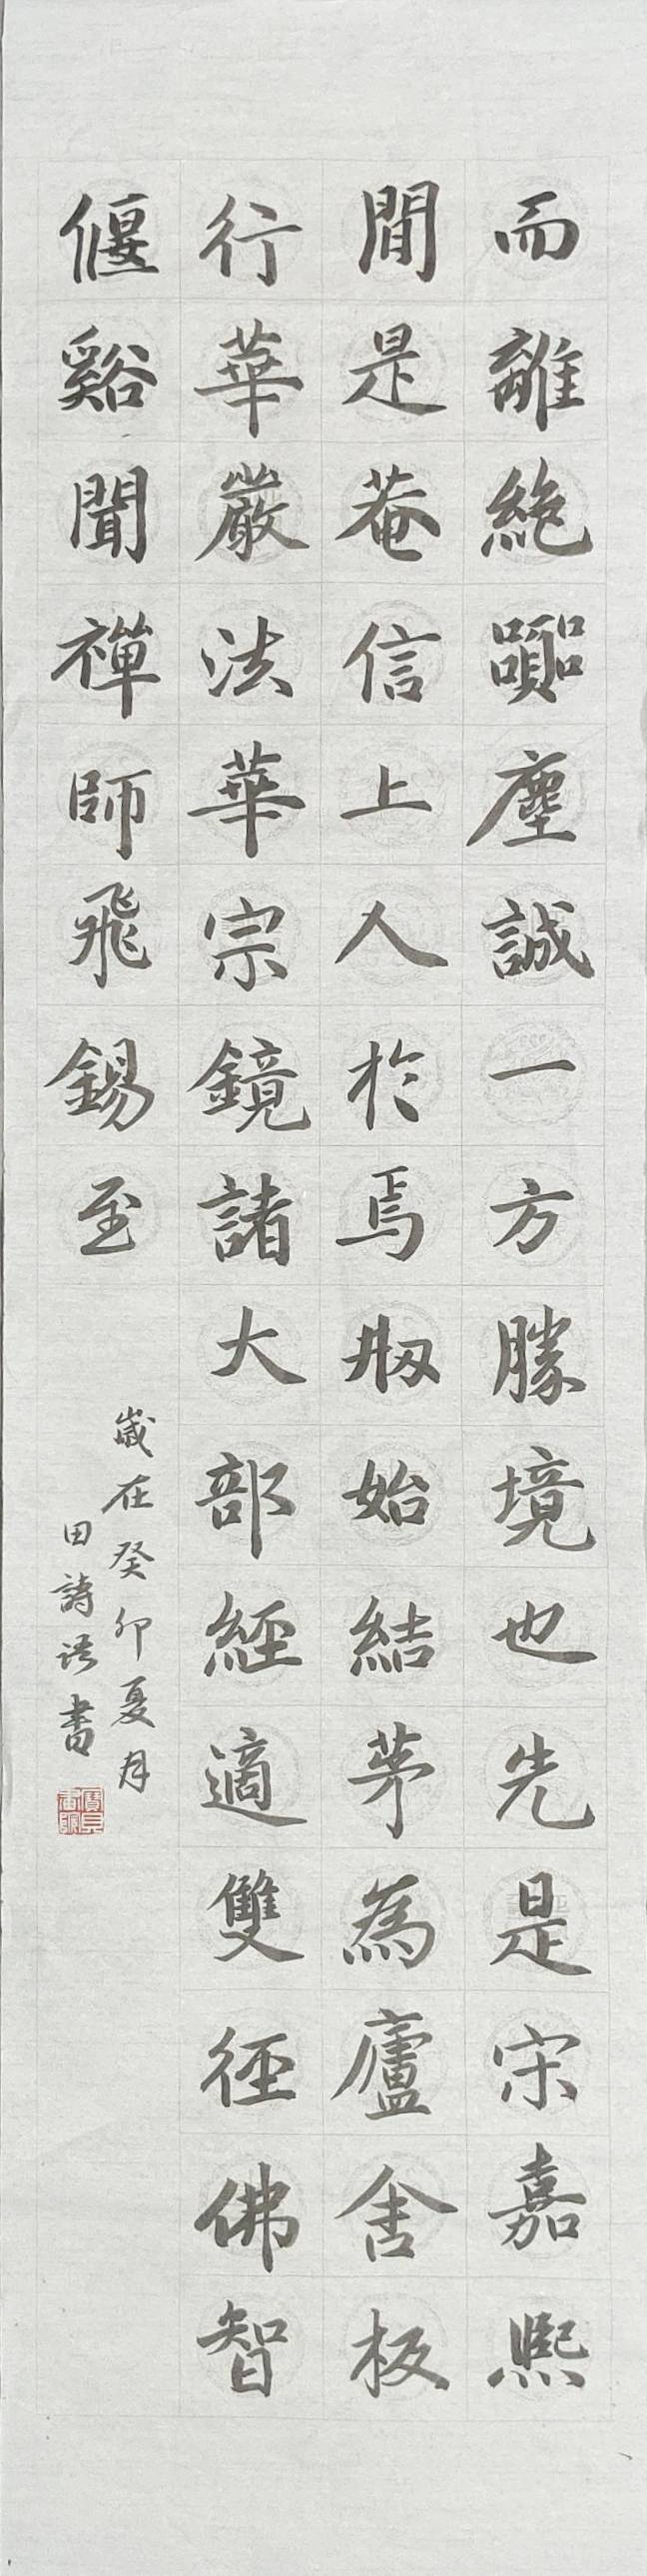 而離絶囂塵誠一方勝境也先是宋嘉熙
間是菴信上人於焉刱始結茅為廬舍板
行華嚴法華宗鏡諸大部經適雙徑佛智
偃谿聞禪師飛錫至
歲在癸卯夏月
田詩語書